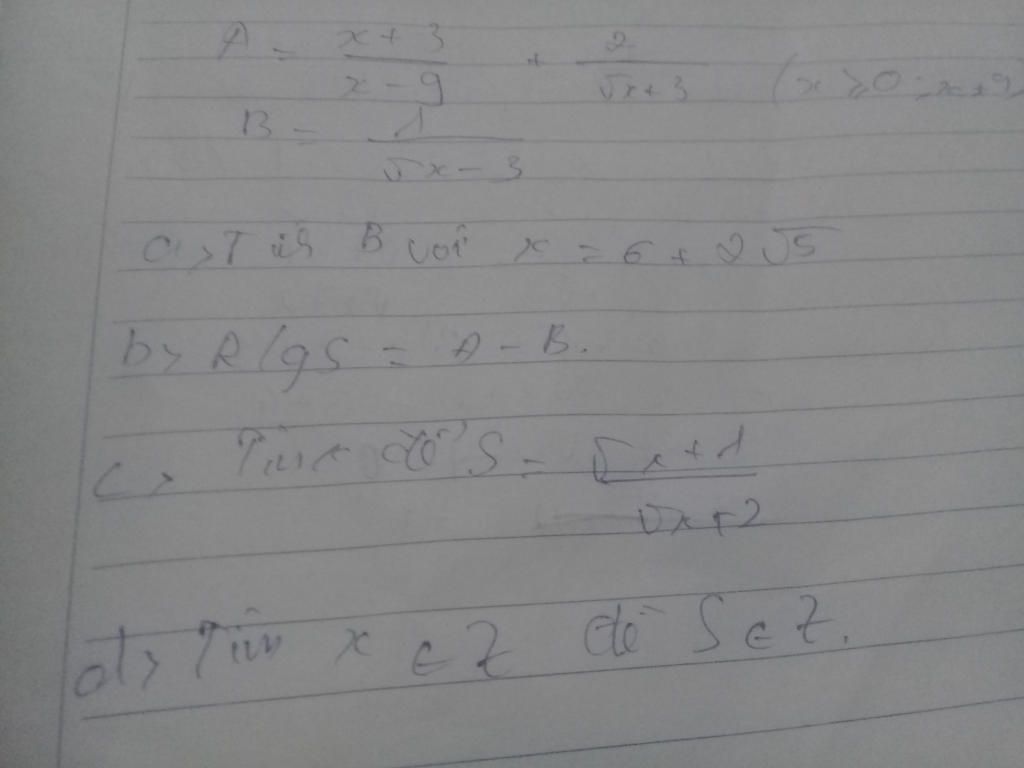 A = x + 3 / x - 9 + 2 / √x + 3 (x ≥ 0 ; x ≠ 9)
B = 1 / √x - 3
a> Tính B với x = 6 + 2√5
b> R/g S = A - B.
c> Tìm x để S = √x + 1 / √x + 2
d> Tìm x ∈ Z để S ∈ Z.